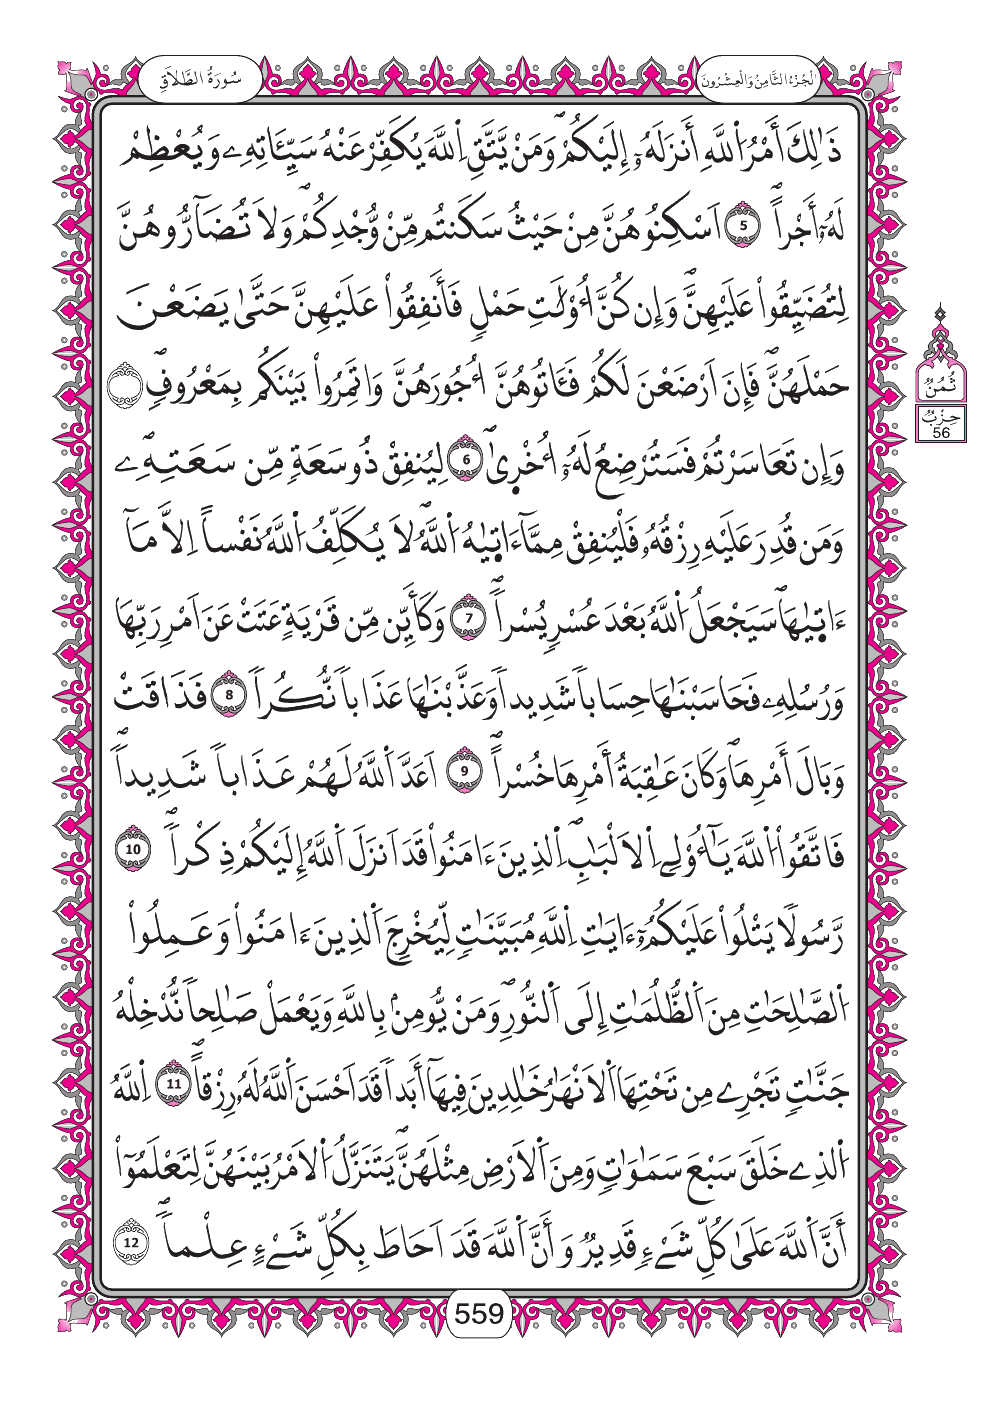 سُورَةُ الطَّلَاقِ
الجُزْءُ الثَّامِنُ وَالْعِشْرُونَ
ذَٰلِكَ أَمْرُ اُ۬للَّهِ أَنزَلَهُۥٓ إِلَيْكُمْۖ وَمَنْ يَّتَّقِ اِ۬للَّهَ يُكَفِّرْ عَنْهُ سَيِّـَٔاتِهِۦ وَيُعْظِمْ
لَهُۥٓ أَجْراًۖ 5 اَسْكِنُوهُنَّ مِنْ حَيْثُ سَكَنتُم مِّنْ وُّجْدِكُمْۖ وَلَا تُضَآرُّوهُنَّ
لِتُضَيِّقُواْ عَلَيْهِنَّۖ وَإِن كُنَّ أُوْلَٰتِ حَمْلٖ فَأَنفِقُواْ عَلَيْهِنَّ حَتَّىٰ يَضَعْنَ
حَمْلَهُنَّۖ فَإِنَ اَرْضَعْنَ لَكُمْ فَـَٔاتُوهُنَّ أُجُورَهُنَّ وَاتَمِرُواْ بَيْنَكُم بِمَعْرُوفٖۖ
وَإِن تَعَاسَرْتُمْ فَسَتُرْضِعُ لَهُۥٓ أُخْرٜىٰۖ 6 لِيُنفِقْ ذُو سَعَةٖ مِّن سَعَتِهِۦۖ
وَمَن قُدِرَ عَلَيْهِ رِزْقُهُۥ فَلْيُنفِقْ مِمَّآ ءَاتٜيٰهُ اُ۬للَّهُۖ لَا يُكَلِّفُ اُ۬للَّهُ نَفْساً اِلَّا مَآ
ءَاتٜيٰهَاۖ سَيَجْعَلُ اُ۬للَّهُ بَعْدَ عُسْرٖ يُسْراٗۖ 7 وَكَأَيِّن مِّن قَرْيَةٍ عَتَتْ عَنَ اَمْرِ رَبِّهَا
وَرُسُلِهِۦ فَحَاسَبْنَٰهَا حِسَاباٗ شَدِيداٗ وَعَذَّبْنَٰهَا عَذَاباٗ نُّكُراٗ 8 فَذَاقَتْ
وَبَالَ أَمْرِهَاۖ وَكَانَ عَٰقِبَةُ أَمْرِهَا خُسْراًۖ 9 اَعَدَّ اَ۬للَّهُ لَهُمْ عَذَاباٗ شَدِيداٗۖ
فَاتَّقُواْ اُ۬للَّهَ يَٰٓأُوْلِے اِ۬لَالْبَٰبِۖ اِ۬لذِينَ ءَامَنُواْ قَدَ اَنزَلَ اَ۬للَّهُ إِلَيْكُمْ ذِكْراٗۖ 10
رَّسُولٗا يَتْلُواْ عَلَيْكُمُۥٓ ءَايَٰتِ اِ۬للَّهِ مُبَيَّنَٰتٖ لِّيُخْرِجَ اَ۬لذِينَ ءَامَنُواْ وَعَمِلُواْ
اُ۬لصَّٰلِحَٰتِ مِنَ اَ۬لظُّلُمَٰتِ إِلَى اَ۬لنُّورِۖ وَمَنْ يُّومِنۢ بِاللَّهِ وَيَعْمَلْ صَٰلِحاٗ نُّدْخِلْهُ
جَنَّٰتٖ تَجْرِے مِن تَحْتِهَا اَ۬لَانْهَٰرُ خَٰلِدِينَ فِيهَآ أَبَداٗ قَدَ اَحْسَنَ اَ۬للَّهُ لَهُۥ رِزْقاًۖ 11 اِ۬للَّهُ
اُ۬لذِے خَلَقَ سَبْعَ سَمَٰوَٰتٖ وَمِنَ اَ۬لَارْضِ مِثْلَهُنَّۖ يَتَنَزَّلُ اُ۬لَامْرُ بَيْنَهُنَّ لِتَعْلَمُوٓاْ
أَنَّ اَ۬للَّهَ عَلَىٰ كُلِّ شَےْءٖ قَدِيرٞ وَأَنَّ اَ۬للَّهَ قَدَ اَحَاطَ بِكُلِّ شَےْءٍ عِلْماٗۖ 12
ثُمُنُ
حِزْبُ
56
559